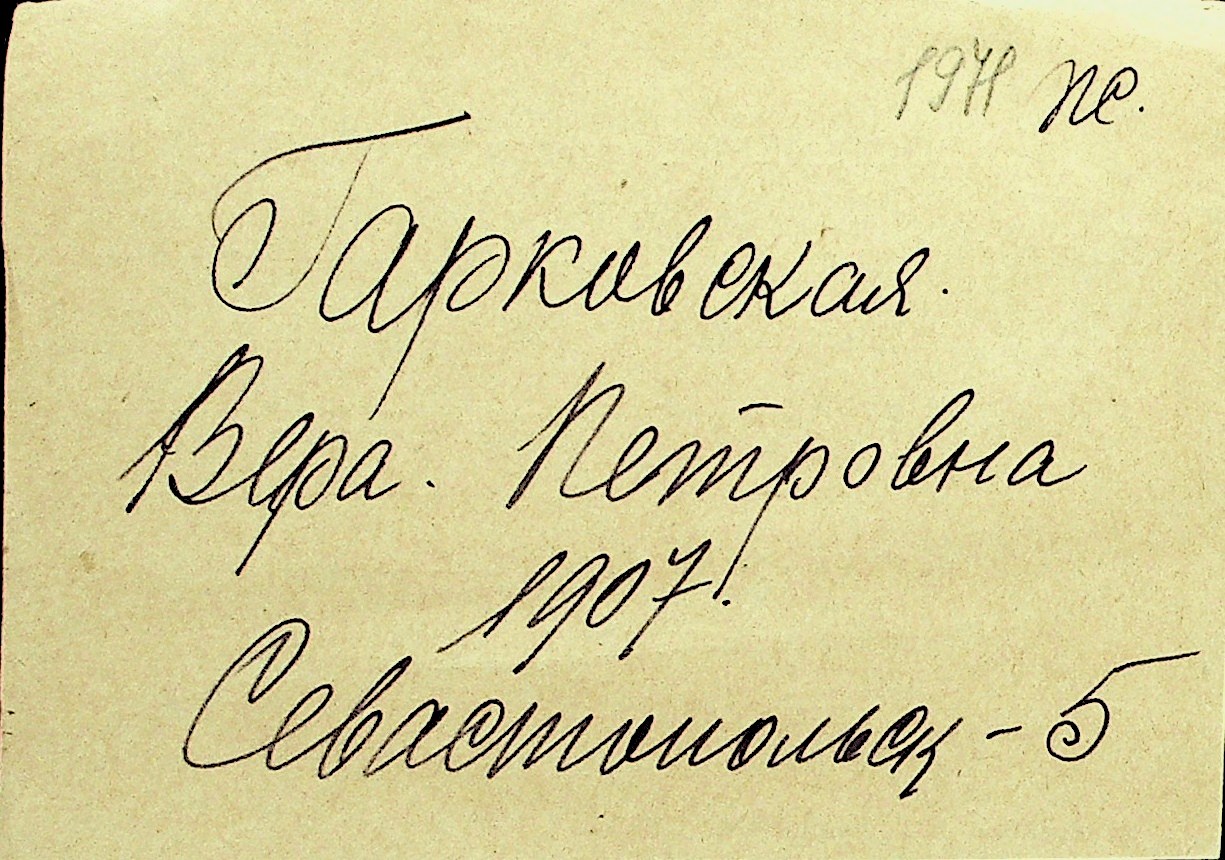 1971 пс.
Тарковская.
Вера. Петровна
1907.
Севастопольск - 5